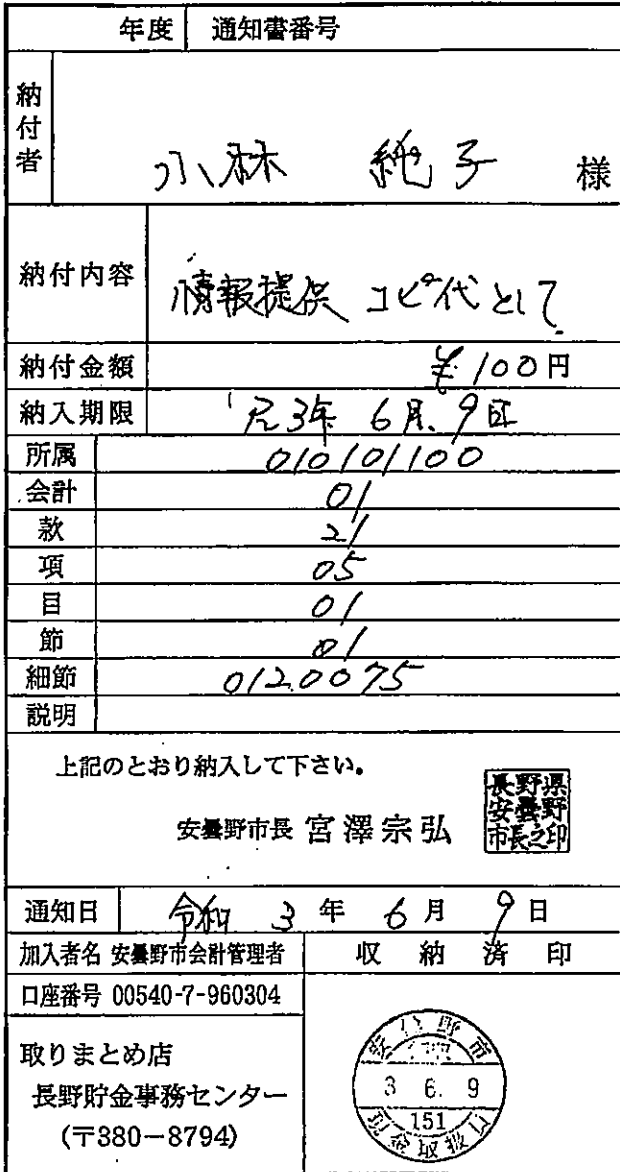 年度 通知書番号
納付者 小林 純子 様
納付内容 情報提供 コピー代として
納付金額 ¥100円
納入期限 R3年 6月 9日
所属 010101100
会計 01
款 21
項 05
目 01
節 01
細節 0120075
説明
上記のとおり納入して下さい。
安曇野市長 宮澤宗弘
長野県
安曇野
市長之印
通知日 令和 3 年 6 月 9 日
加入者名 安曇野市会計管理者
収納済印
口座番号 00540-7-960304
取りまとめ店
長野貯金事務センター
(〒380-8794)
安曇野市
3 6. 9
151
現金取扱